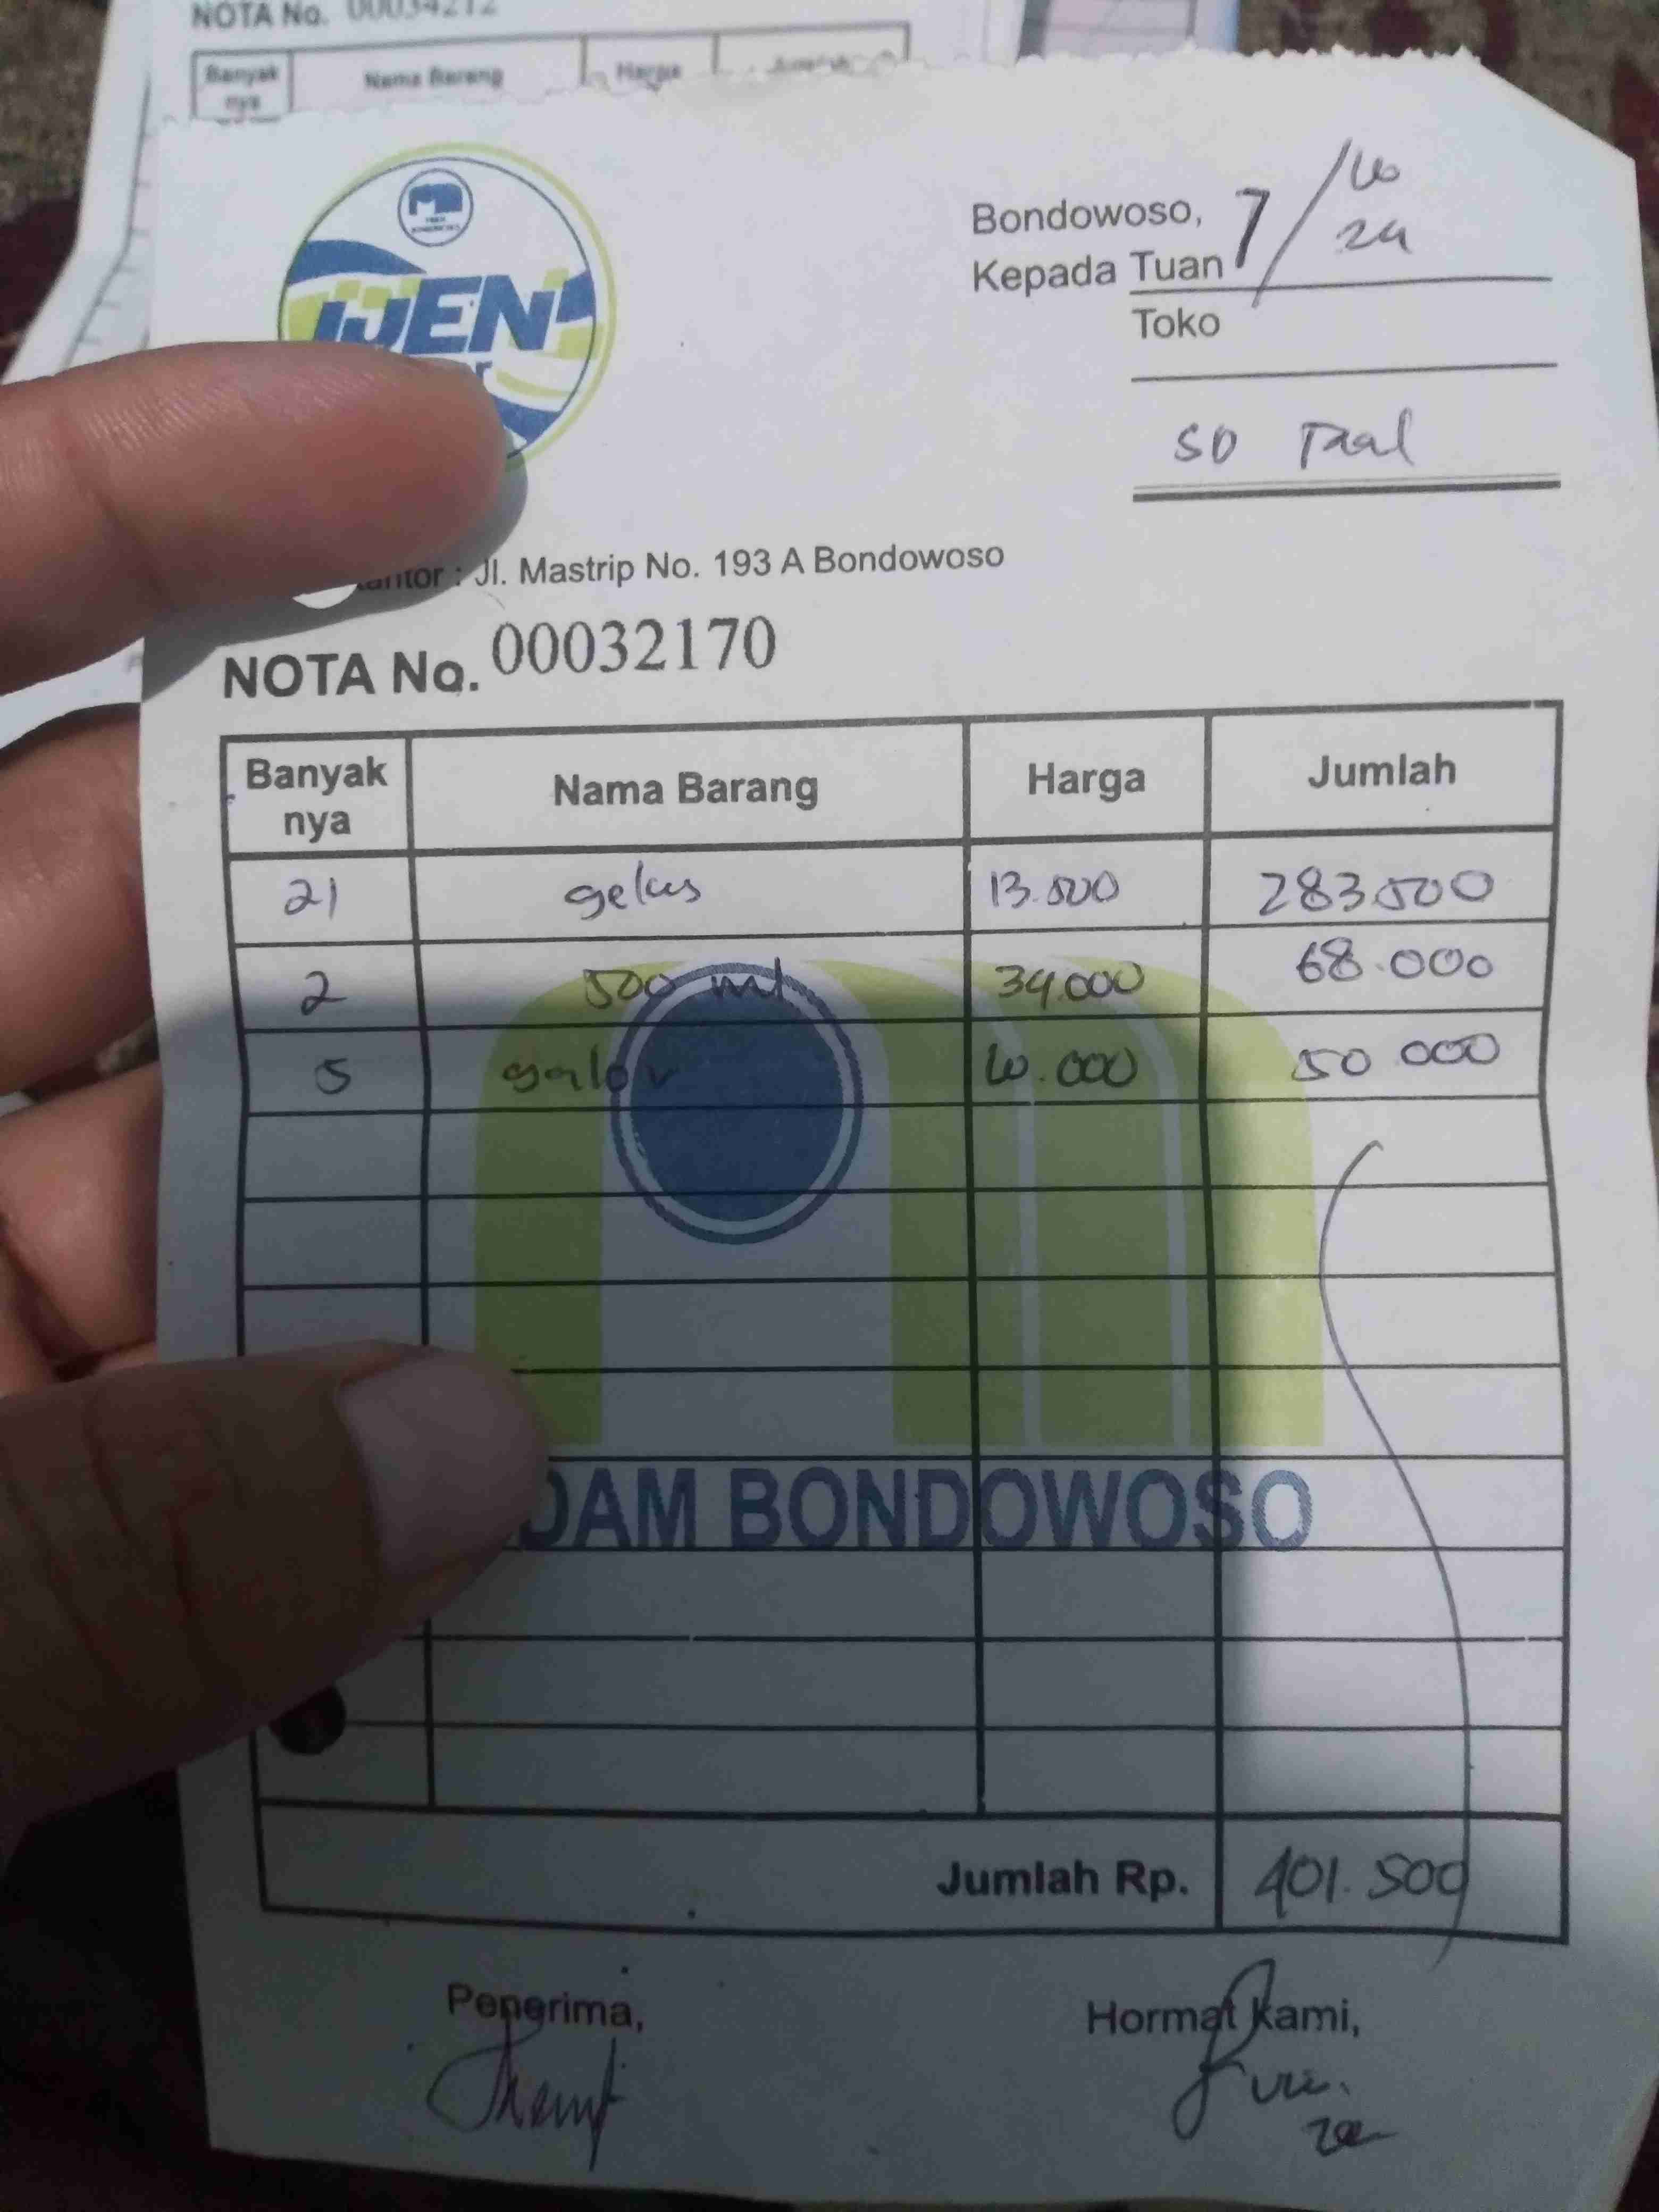 NOTA No. 00034212
Banyak nya Nama Barang Harga Jumlah
IJEN
Bondowoso, 7/10 24
Kepada Tuan
Toko
SD
Kantor : Jl. Mastrip No. 193 A Bondowoso
NOTA No. 00032170
Banyak nya Nama Barang Harga Jumlah
21 gelas 13.500 283.500
2 500 ml 34.000 68.000
5 galon 10.000 50 000
DAM BONDOWOSO
Jumlah Rp. 401.500
Penerima, Hormat Kami,